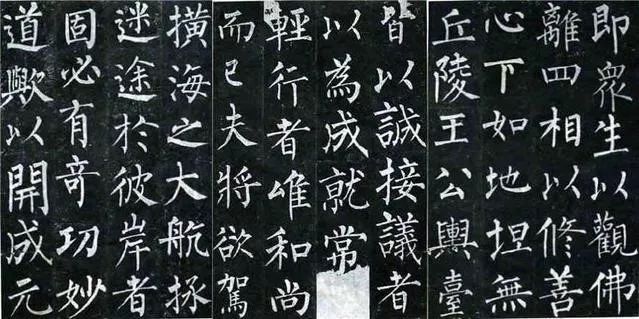 即衆生以觀佛
離四相以修善
心下如地坦無
丘陵王公輿臺
皆以誠接議者
以為成就常
輕行者唯和尚
而已夫將欲駕
橫海之大航拯
迷途於彼岸者
固必有奇功妙
道歟以開成元